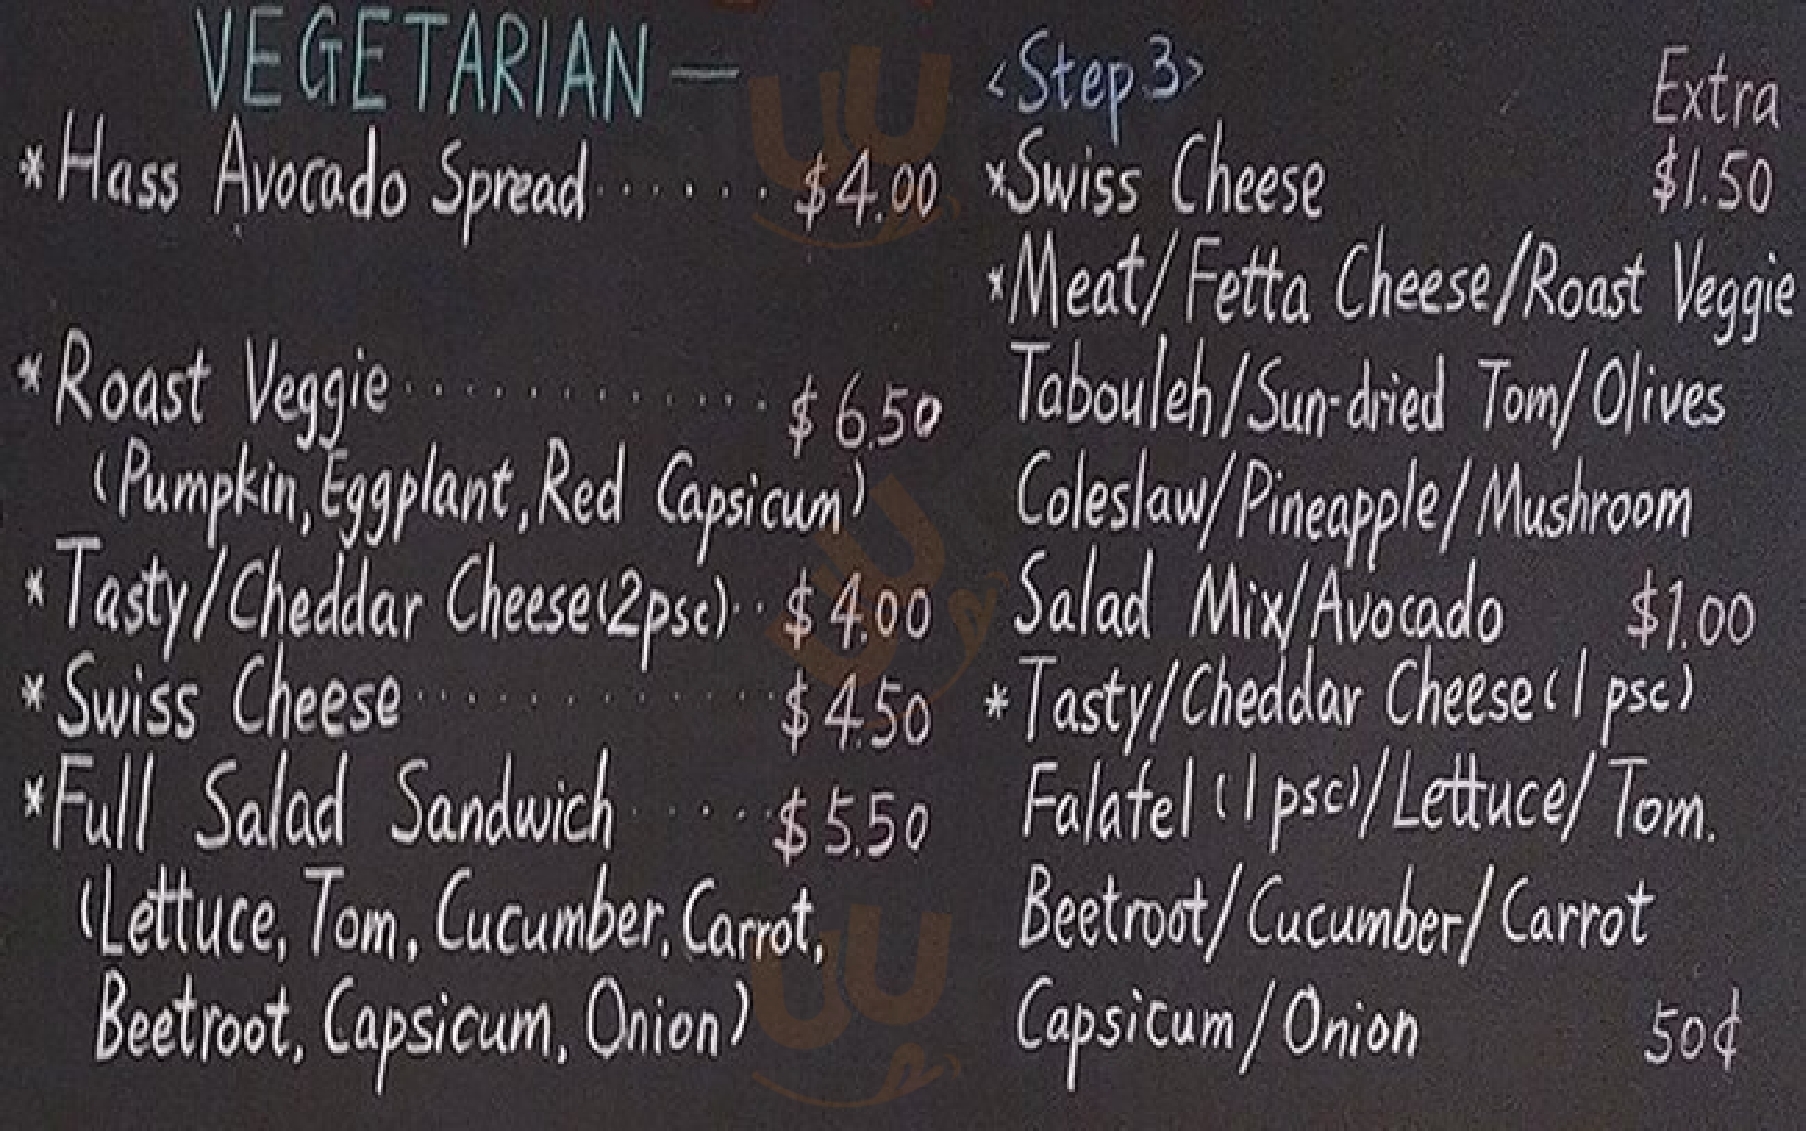 VEGETARIAN —
*Hass Avocado Spread...... $4.00
*Roast Veggie............ $6.50
(Pumpkin, Eggplant, Red Capsicum)
*Tasty/Cheddar Cheese(2psc).. $4.00
*Swiss Cheese........... $4.50
*Full Salad Sandwich..... $5.50
(Lettuce, Tom, Cucumber, Carrot,
Beetroot, Capsicum, Onion)
<Step 3> Extra
*Swiss Cheese $1.50
*Meat/Fetta Cheese/Roast Veggie
Tabouleh/Sun-dried Tom/Olives
Coleslaw/Pineapple/Mushroom
Salad Mix/Avocado $1.00
*Tasty/Cheddar Cheese(1 psc)
Falafel (1 psc)/Lettuce/Tom.
Beetroot/Cucumber/Carrot
Capsicum/Onion 50¢